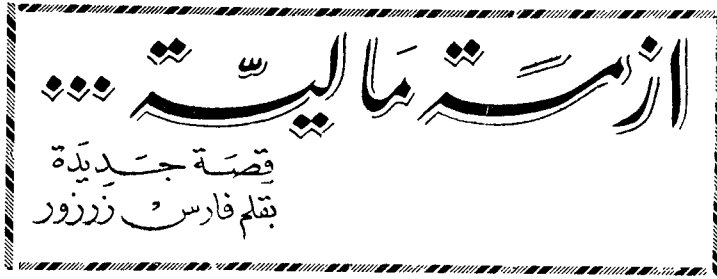 ازمَة مَاليّة ...
قصَة جَديَدة
بقلم فارسْ زَرزور